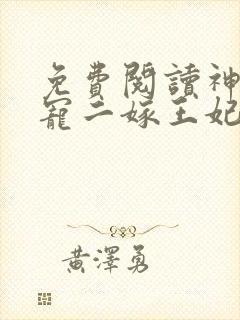 免費閱讀神
寵二嫁王妃
黃澤勇